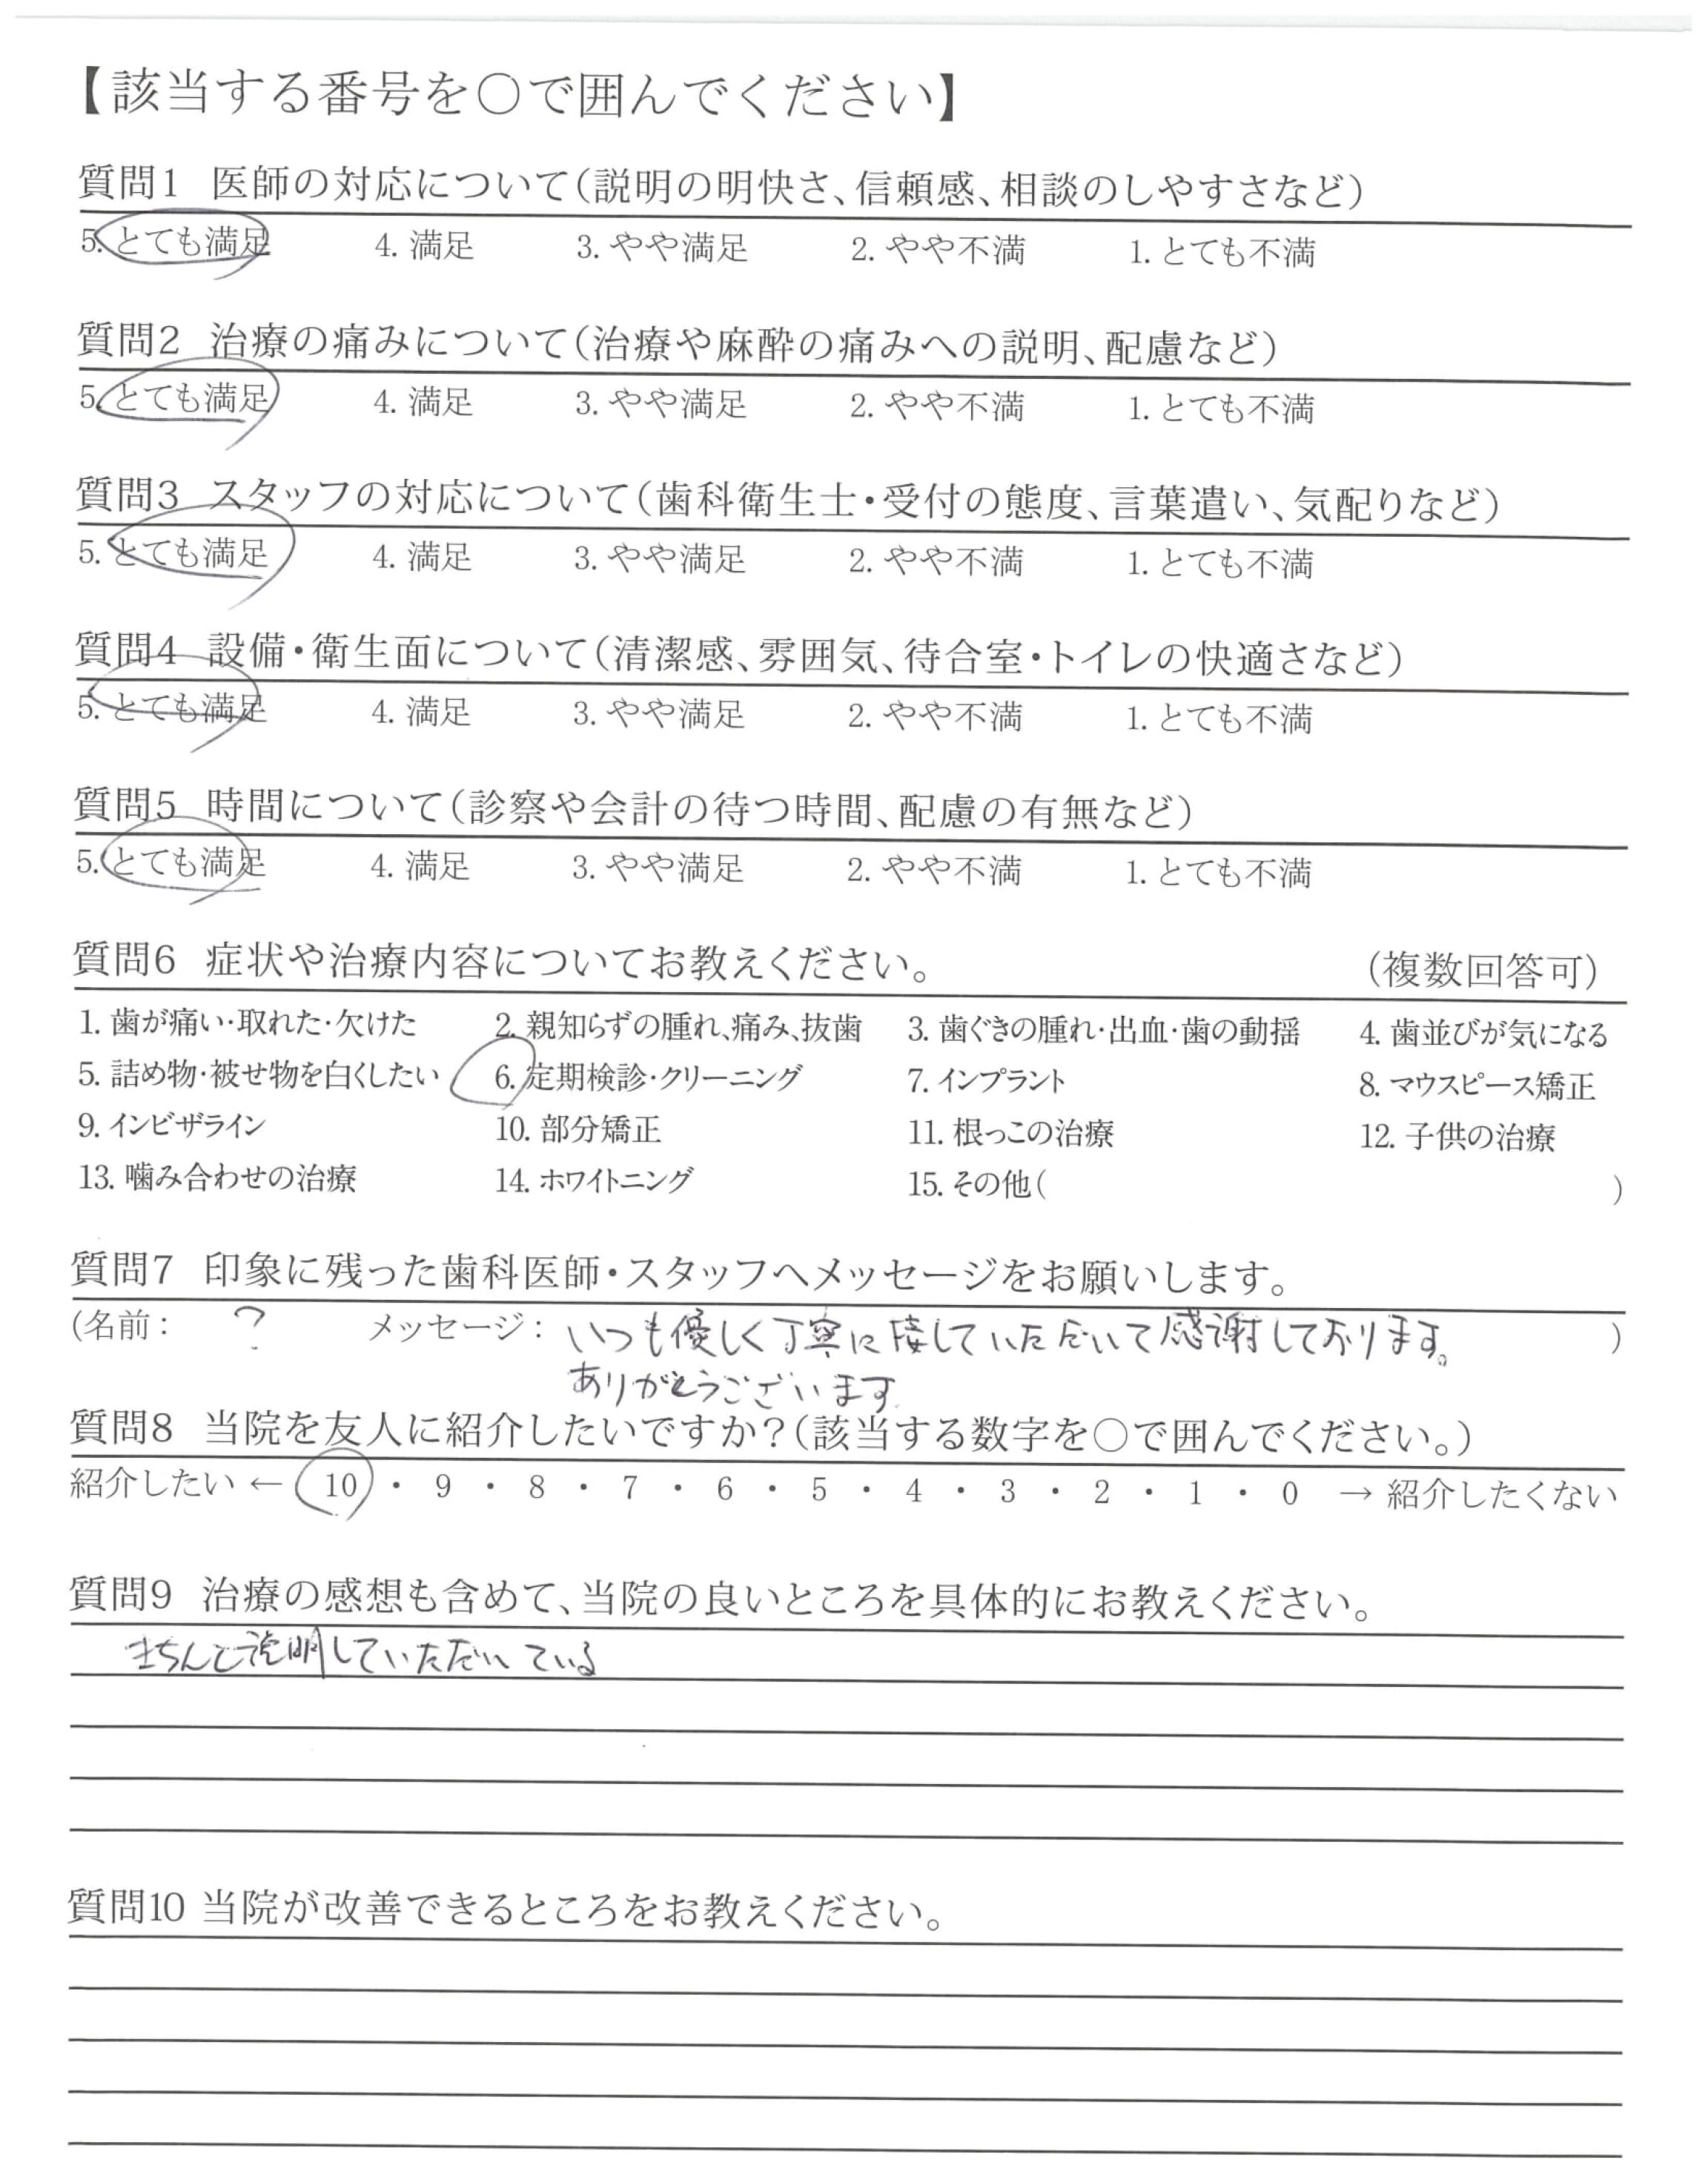 【該当する番号を○で囲んでください】
質問1 医師の対応について(説明の明快さ、信頼感、相談のしやすさなど)
5. とても満足 4. 満足 3. やや満足 2. やや不満 1. とても不満
質問2 治療の痛みについて(治療や麻酔の痛みへの説明、配慮など)
5. とても満足 4. 満足 3. やや満足 2. やや不満 1. とても不満
質問3 スタッフの対応について(歯科衛生士・受付の態度、言葉遣い、気配りなど)
5. とても満足 4. 満足 3. やや満足 2. やや不満 1. とても不満
質問4 設備・衛生面について(清潔感、雰囲気、待合室・トイレの快適さなど)
5. とても満足 4. 満足 3. やや満足 2. やや不満 1. とても不満
質問5 時間について(診察や会計の待つ時間、配慮の有無など)
5. とても満足 4. 満足 3. やや満足 2. やや不満 1. とても不満
質問6 症状や治療内容についてお教えください。 (複数回答可)
1. 歯が痛い・取れた・欠けた 2. 親知らずの腫れ、痛み、抜歯 3. 歯ぐきの腫れ・出血・歯の動揺 4. 歯並びが気になる
5. 詰め物・被せ物を白くしたい 6. 定期検診・クリーニング 7. インプラント 8. マウスピース矯正
9. インビザライン 10. 部分矯正 11. 根っこの治療 12. 子供の治療
13. 噛み合わせの治療 14. ホワイトニング 15. その他( )
質問7 印象に残った歯科医師・スタッフへメッセージをお願いします。
(名前: ? メッセージ: いつも優しく丁寧に接していただいて感謝しております。 )
ありがとうございます
質問8 当院を友人に紹介したいですか?(該当する数字を○で囲んでください。)
紹介したい ← 10 ・ 9 ・ 8 ・ 7 ・ 6 ・ 5 ・ 4 ・ 3 ・ 2 ・ 1 ・ 0 → 紹介したくない
質問9 治療の感想も含めて、当院の良いところを具体的にお教えください。
きちんと説明していただいている
質問10 当院が改善できるところをお教えください。